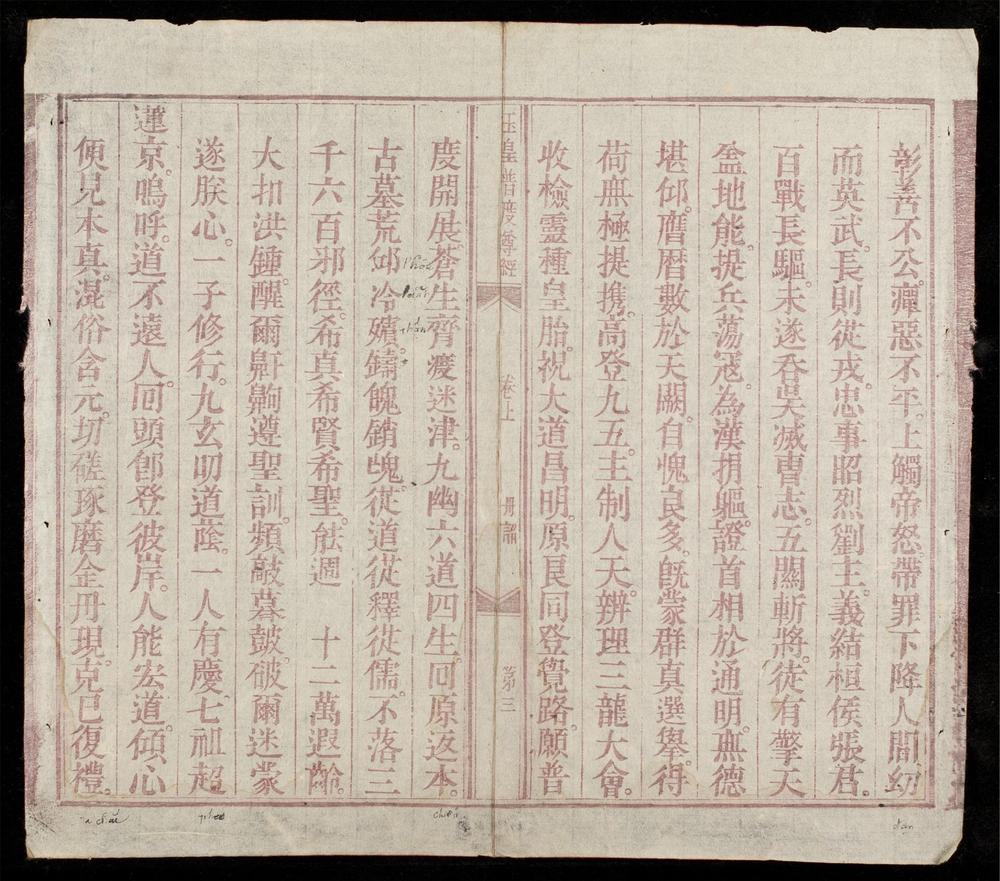 彰善不公。癉惡不平。上觸帝怒。帶罪下降人間幼
而英武。長則從戎。忠事昭烈劉主。義結桓侯張君。
百戰長驅。未遂吞吳滅曹志。五關斬將。徒有擎天
盆地能。提兵蕩冦。為漢捐軀。證首相於通明。無德
堪仰。膺曆數於天闕。自愧良多。旣蒙群真選舉。得
荷無極提携。高登九五。主制人天。辦理三龍大會。
收檢靈種皇胎。祝大道昌明。原艮同登覺路。願普
玉皇普度尊經
卷上
冊詔
第三
度開展。蒼生齊度迷津。九幽六道四生。囘原返本。
古墓荒邱冷殯。鑄魄銷魂。從道從釋從儒。不落三
千六百邪徑。希真希賢希聖。能週 十二萬遐齡。
大扣洪鍾。醒爾鼾齁遵聖訓。頻敲暮鼓。破爾迷蒙
遂朕心。一子修行。九玄叨道蔭。一人有慶。七祖超
蓮京。嗚呼。道不遠人。囘頭卽登彼岸。人能宏道。傾心
便見本真。混俗含元。切磋琢磨金丹現。克已復禮。
đan
chiến